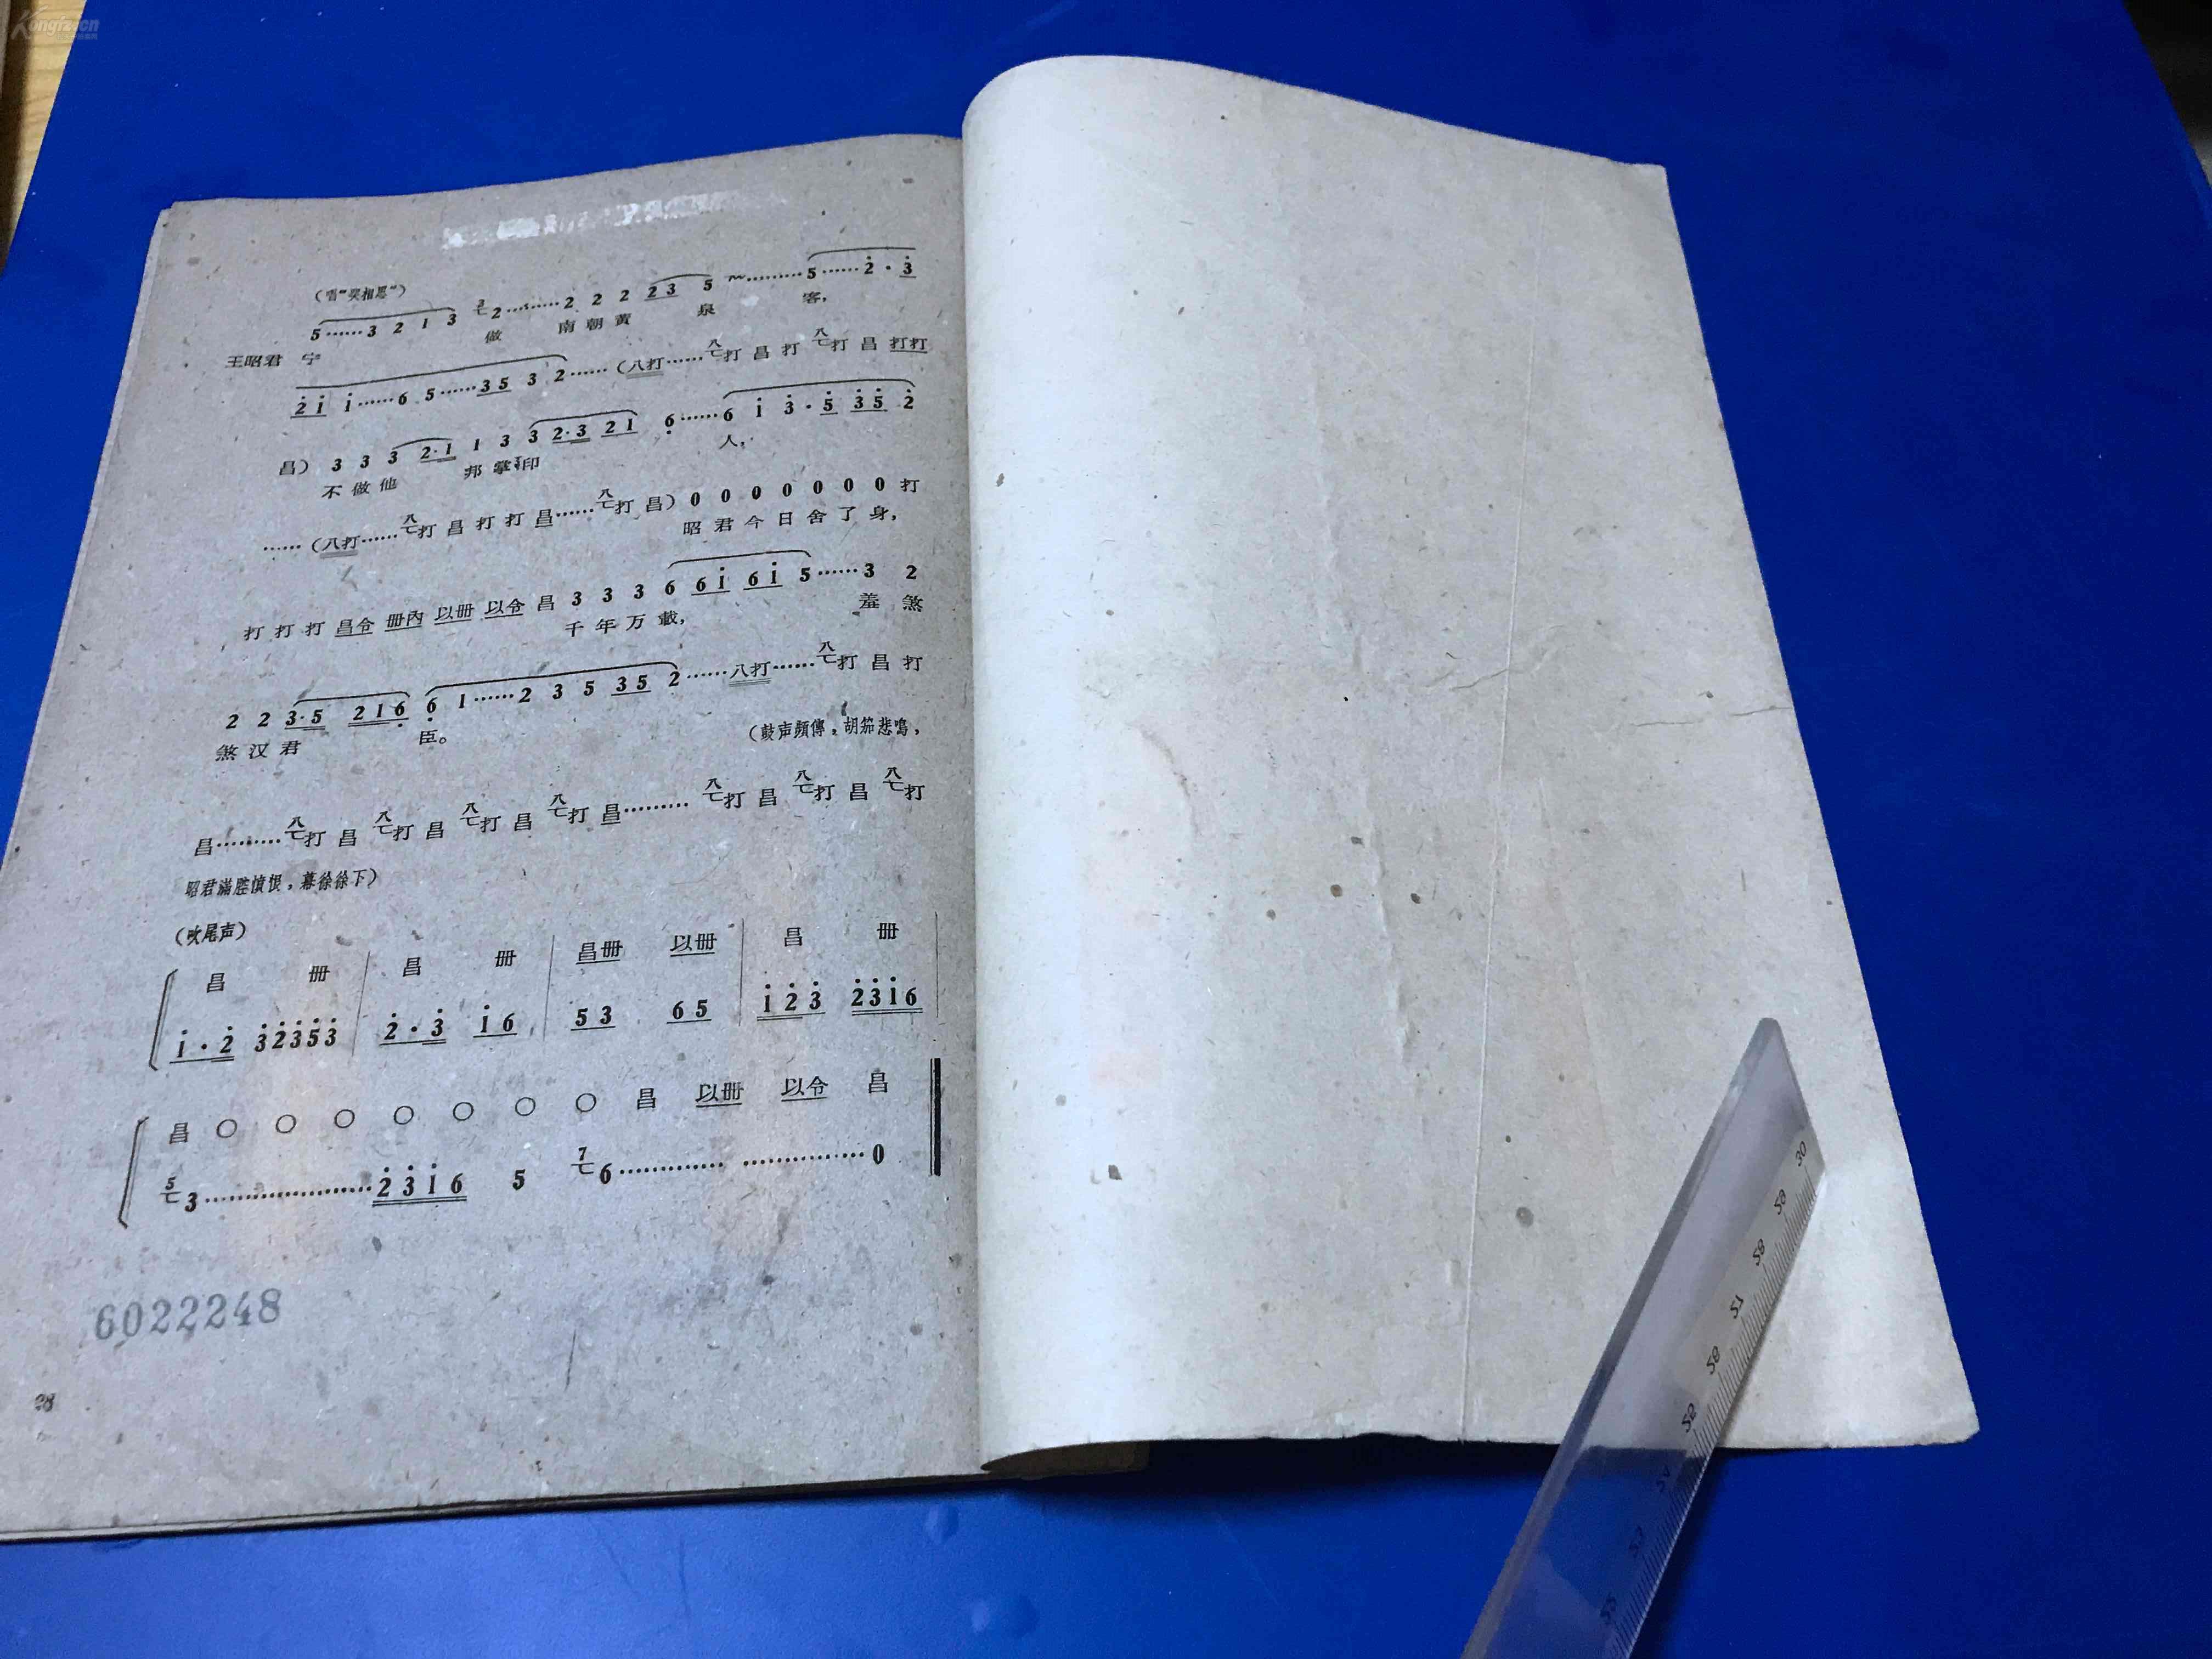 Kongfz.cn
（唱“哭相思”）
5……3 2 1 3 2……2 2 2 2 3 5 ～………5……2̇·3̇
王昭君 宁 做 南朝黄 泉 客，
2̇ 1̇ 1̇……6 5……3 5 3 2……（八打……八七打 昌 打 八七打 昌 打打
昌） 3 3 3 2·1 1 3 3 2·3 2 1 6̣……6 1̇ 3̇·5̇ 3̇ 5̇ 2̇
不 做 他 邦 掌 印 人，
……（八打……八七打 昌 打 打 昌……八七打 昌） 0 0 0 0 0 0 0 打
昭 君 今 日 舍 了 身，
打 打 打 昌令 冊內 以冊 以令 昌 3 3 3 6 6 1̇ 6 1̇ 5……3 2
千 年 万 載， 羞 煞
2 2 3·5 2 1 6̣ 6̣ 1……2 3 5 3 5 2……八打……八七打 昌 打
煞 汉 君 臣。 （鼓声頻傳，胡笳悲鳴，
昌………八七打 昌 八七打 昌 八七打 昌 八七打 昌……… 八七打 昌 八七打 昌 八七打
昭君滿腔憤恨，幕徐徐下）
（吹尾声）
昌 冊 昌 冊 昌冊 以冊 昌 冊
1̇·2̇ 3̇2̇3̇5̇3̇ 2̇·3̇ 1̇ 6 5 3 6 5 1̇ 2̇ 3̇ 2̇3̇1̇6
昌 ○ ○ ○ ○ ○ ○ ○ 昌 以冊 以令 昌
5七3…………………2̇ 3̇ 1̇ 6 5 7七6………… …………0
6022248
28
30